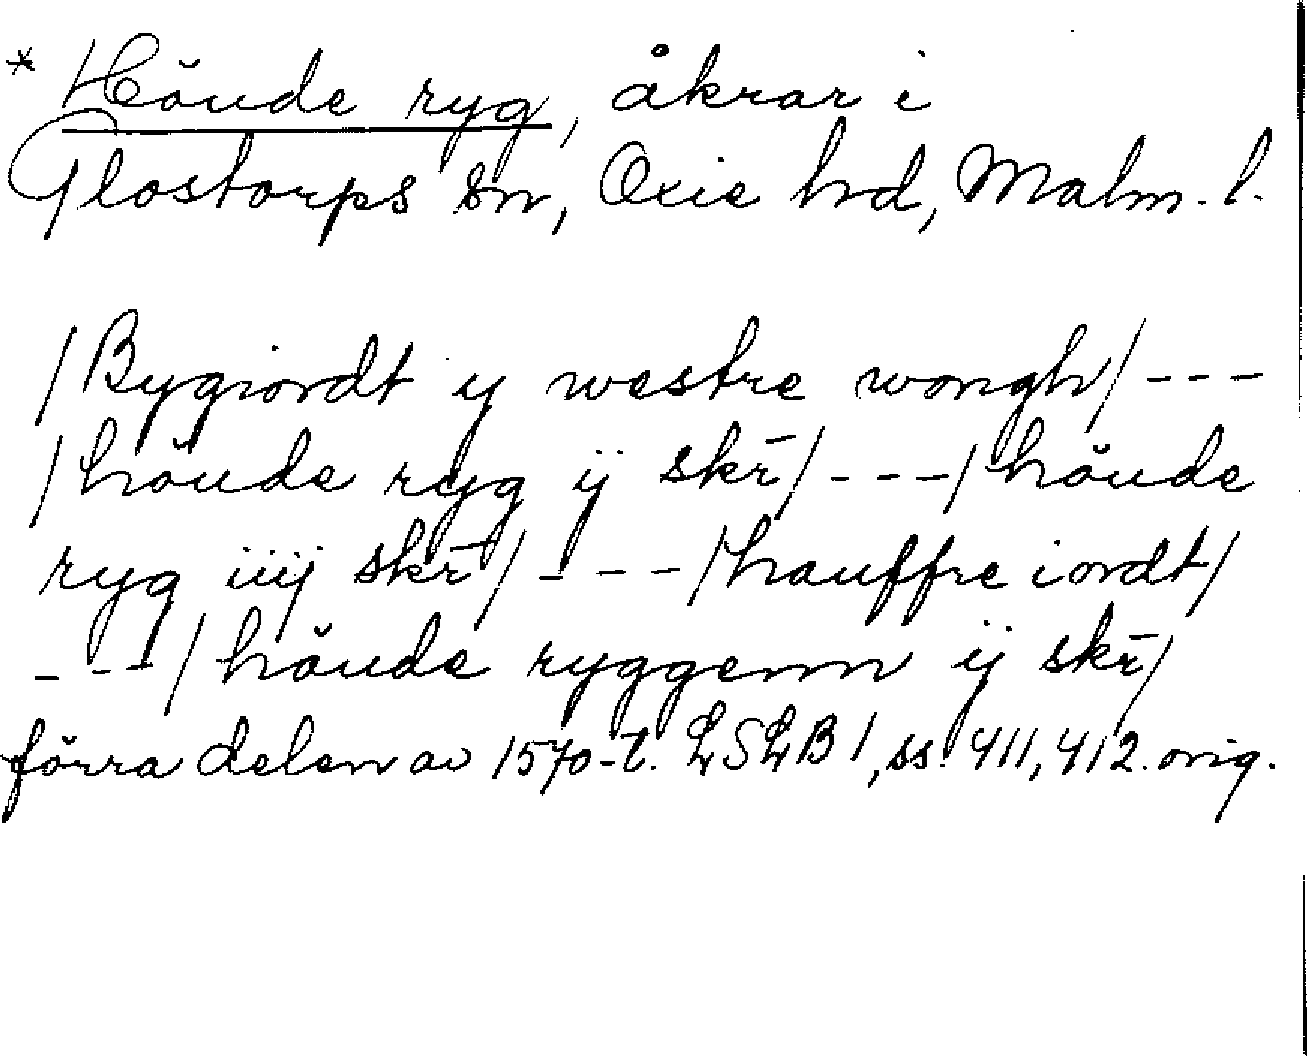 * Höude ryg, åkrar i
Glostorps sn, Oxie hd, Malm. l.
/Bygiordt y westre wongh/ ---
/höude ryg ij skr̄/ --- /höude
ryg iiij skr̄/ --- /hauffre iordt/
--- /höude ryggenn ij skr̄/
förra delen av 1570-t. LSLB 1, ss. 411, 412. orig.